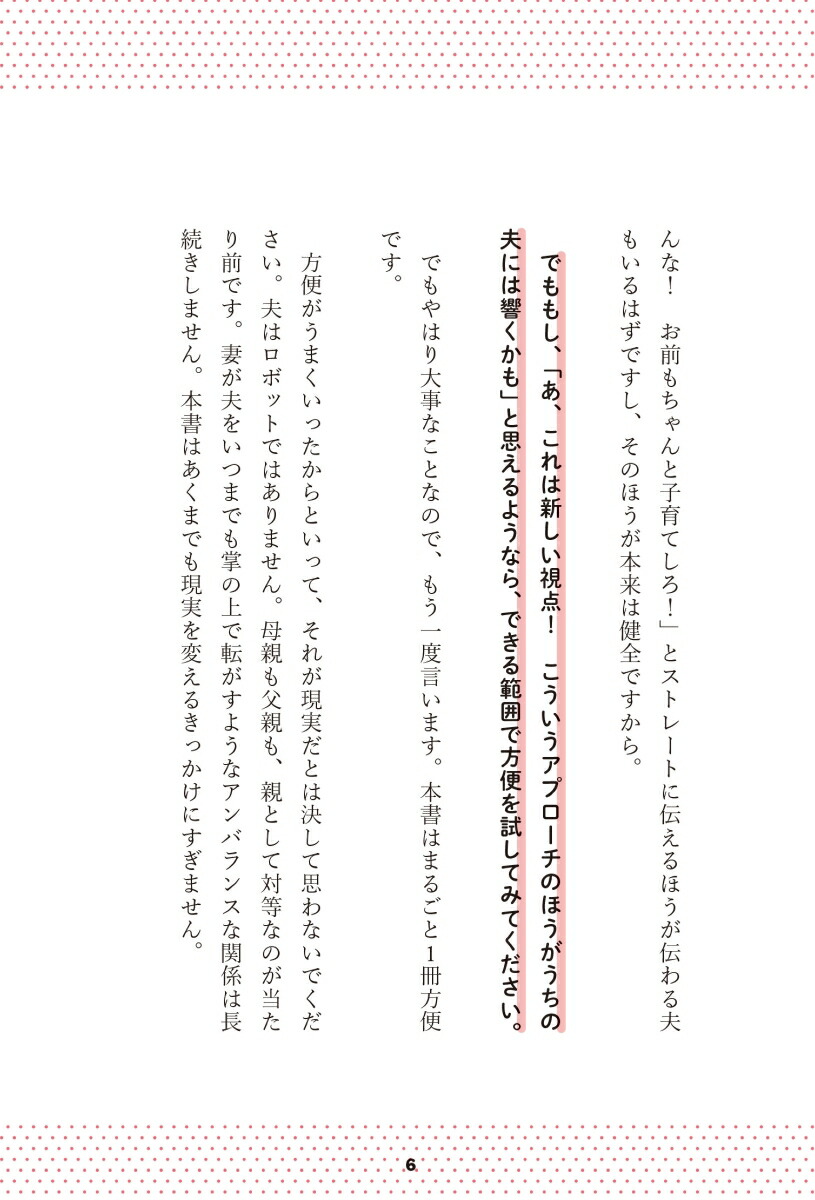 んな！　お前もちゃんと子育てしろ！」とストレートに伝えるほうが伝わる夫
もいるはずですし、そのほうが本来は健全ですから。
でももし、「あ、これは新しい視点！　こういうアプローチのほうがうちの
夫には響くかも」と思えるようなら、できる範囲で方便を試してみてください。
でもやはり大事なことなので、もう一度言います。本書はまるごと1冊方便
です。
方便がうまくいったからといって、それが現実だとは決して思わないでくだ
さい。夫はロボットではありません。母親も父親も、親として対等なのが当た
り前です。妻が夫をいつまでも掌の上で転がすようなアンバランスな関係は長
続きしません。本書はあくまでも現実を変えるきっかけにすぎません。
6